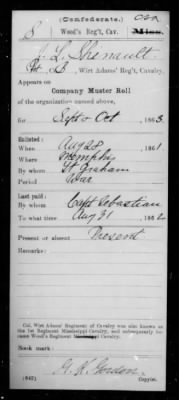 (Confederate.)
S Wood's Reg't, Cav. Miss. CSA
J. L. Shenault
Wirt Adams' Reg't, Cavalry.
Appears on
Company Muster Roll
of the organization named above,
for Sept & Oct, 1863.
Enlisted:
When Aug 28, 1861
Where Memphis
By whom Lt Graham
Period War
Last paid:
By whom Capt Sebastian
To what time Aug 31, 1862
Present or absent Present
Remarks:
Col. Wirt Adams' Regiment of Cavalry was also known as
the 1st Regiment Mississippi Cavalry, and subsequently be-
came Wood's Regiment Mississippi Cavalry.
Book mark:
G. K. Gordon
(642) Copyist.